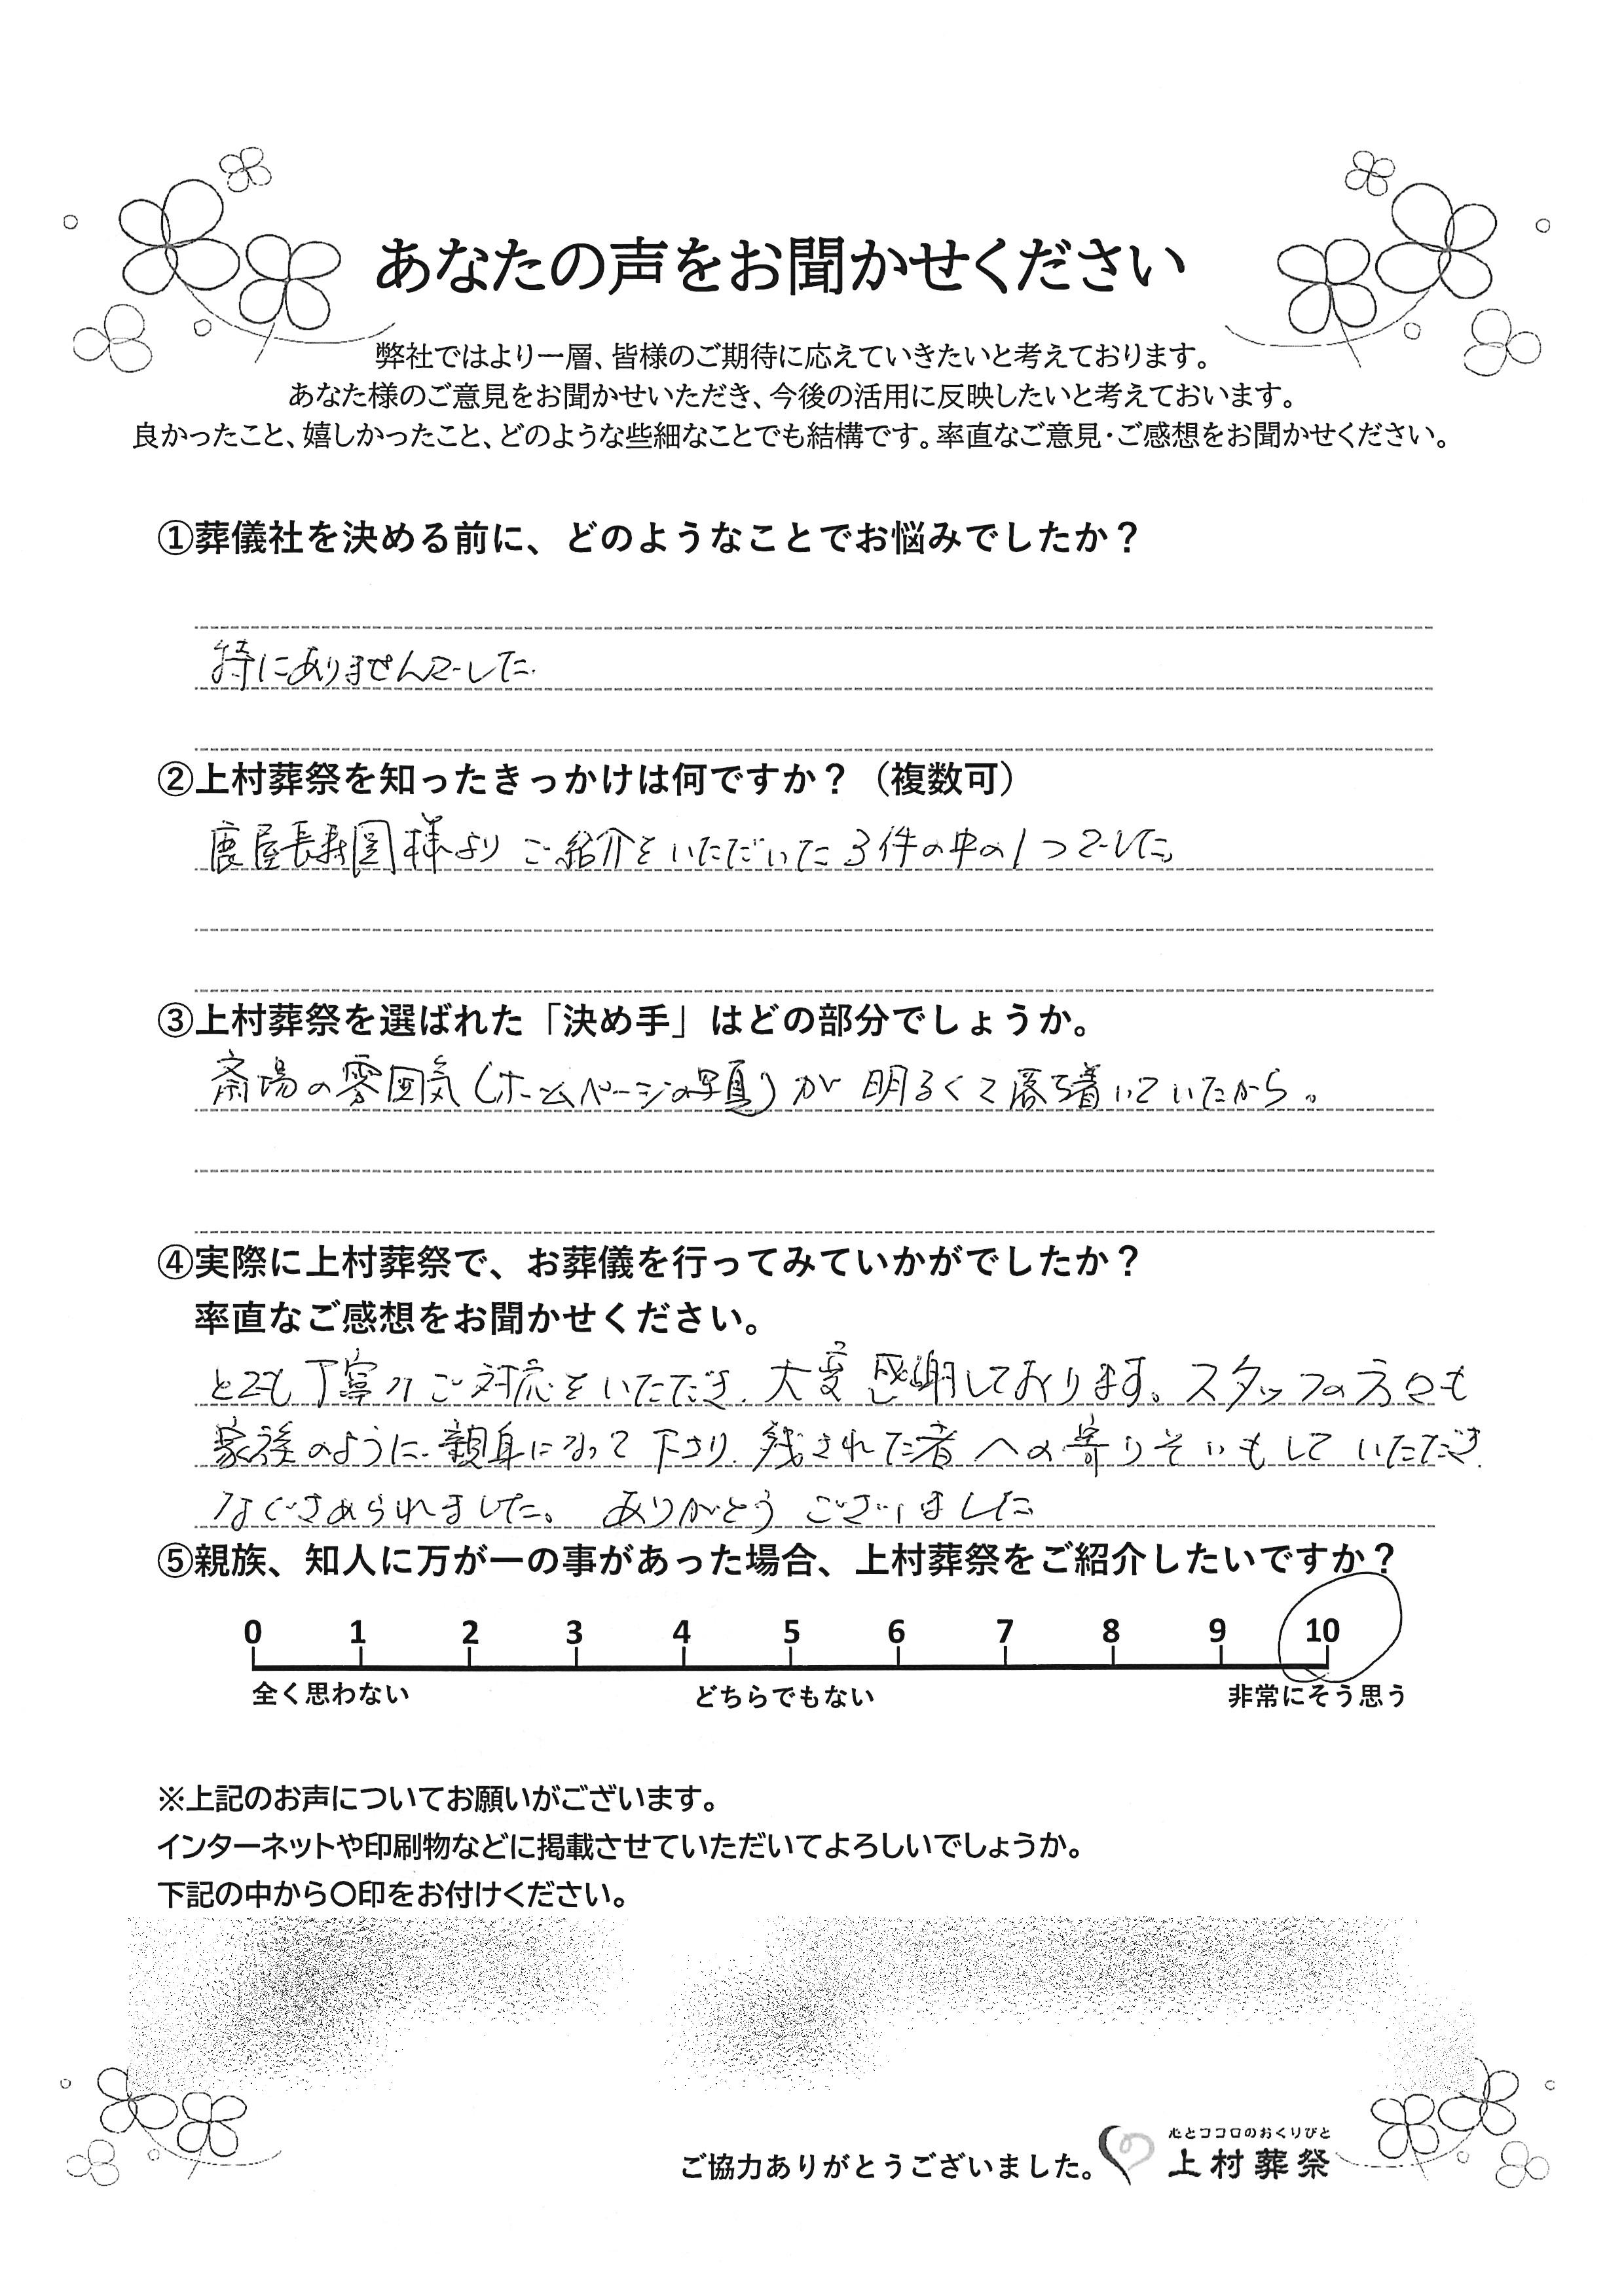 あなたの声をお聞かせください
弊社ではより一層、皆様のご期待に応えていきたいと考えております。
あなた様のご意見をお聞かせいただき、今後の活用に反映したいと考えておいます。
良かったこと、嬉しかったこと、どのような些細なことでも結構です。率直なご意見・ご感想をお聞かせください。
①葬儀社を決める前に、どのようなことでお悩みでしたか？
特にありませんでした.
②上村葬祭を知ったきっかけは何ですか？（複数可）
鹿屋長寿園様より ご紹介をいただいた3件の中の1つでした。
③上村葬祭を選ばれた「決め手」はどの部分でしょうか。
斎場の雰囲気(ホームページの写真)が 明るくて落ち着いていたから。
④実際に上村葬祭で、お葬儀を行ってみていかがでしたか？
率直なご感想をお聞かせください。
とても丁寧なご対応をいただき、大変感謝しております。スタッフの方々も
家族のように、親身になって下さり、残された者への寄りそいもして いただき、
なぐさめられました。 ありがとう ございました
⑤親族、知人に万が一の事があった場合、上村葬祭をご紹介したいですか？
0 1 2 3 4 5 6 7 8 9 10
全く思わない どちらでもない 非常にそう思う
※上記のお声についてお願いがございます。
インターネットや印刷物などに掲載させていただいてよろしいでしょうか。
下記の中から〇印をお付けください。
心とココロのおくりびと
ご協力ありがとうございました。 上村葬祭